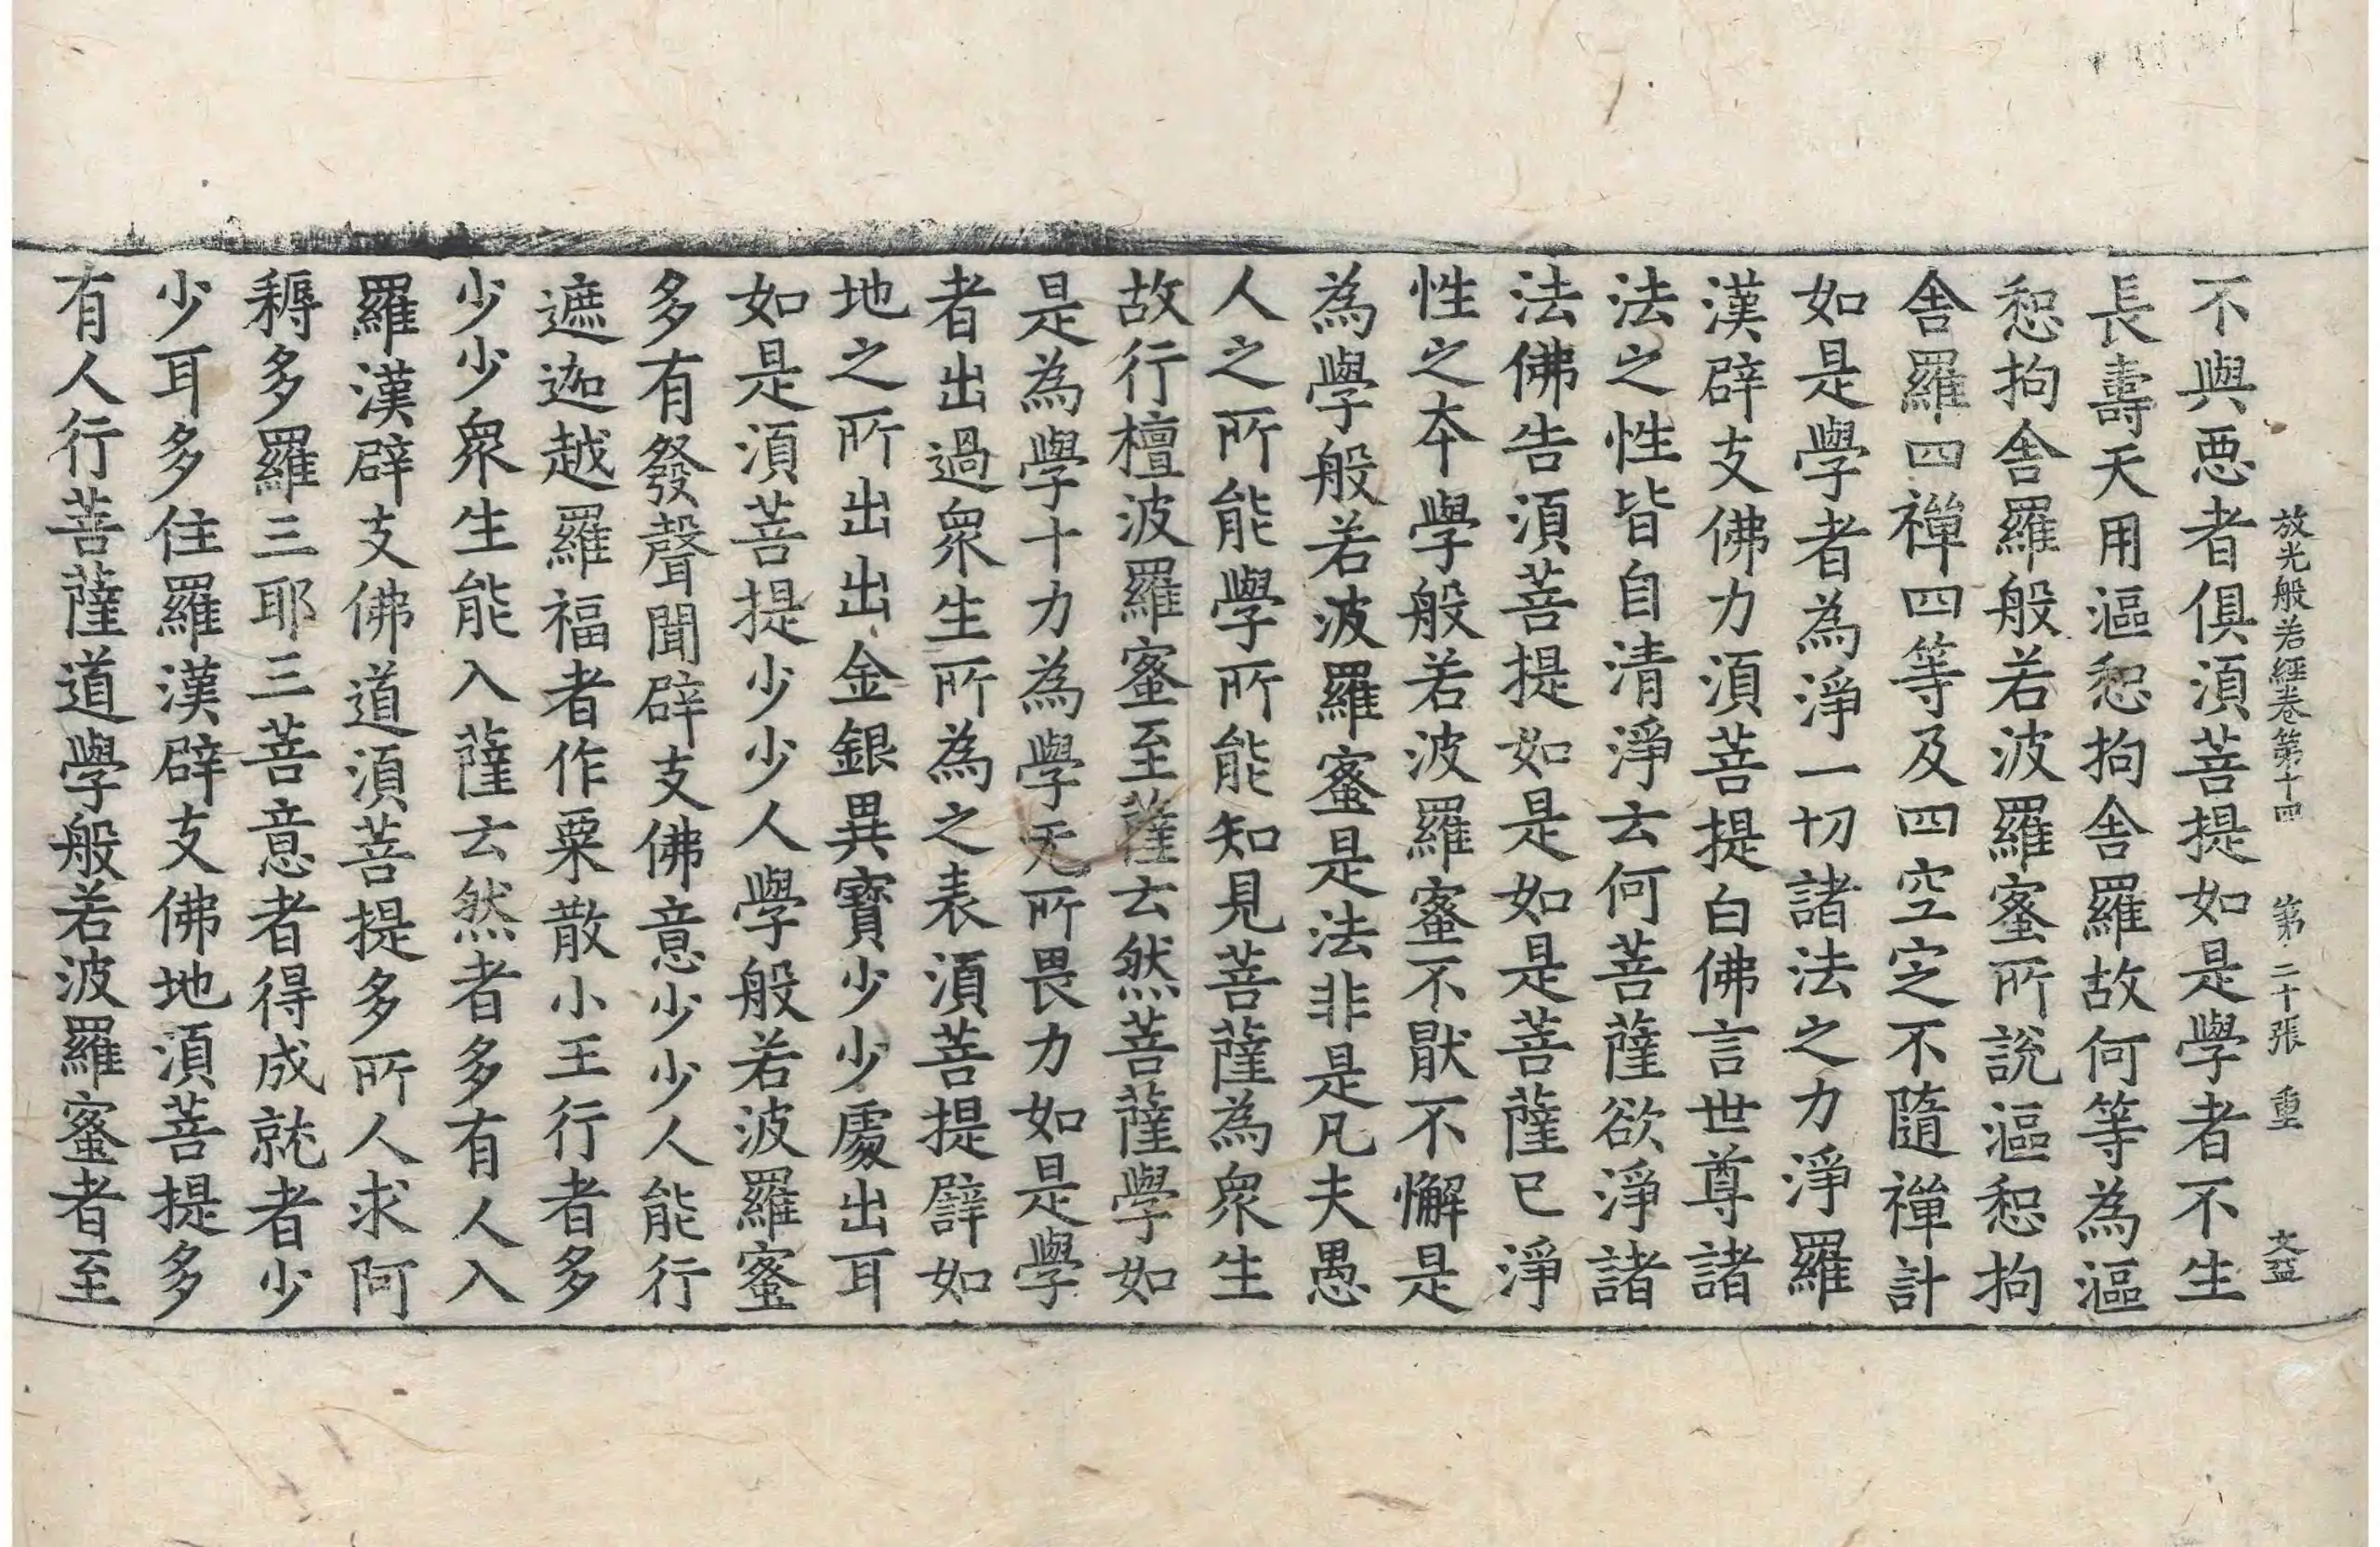 放光般若經卷第十四 第二十張 重 文益
不與惡者俱須菩提如是學者不生
長壽天用漚惒拘舍羅故何等為漚
惒拘舍羅般若波羅蜜所說漚惒拘
舍羅四禪四等及四空定不隨禪計
如是學者為淨一切諸法之力淨羅
漢辟支佛力須菩提白佛言世尊諸
法之性皆自清淨云何菩薩欲淨諸
法佛告須菩提如是如是菩薩已淨
性之本學般若波羅蜜不厭不懈是
為學般若波羅蜜是法非是凡夫愚
人之所能學所能知見菩薩為眾生
故行檀波羅蜜至薩云然菩薩學如
是為學十力為學无所畏力如是學
者出過眾生所為之表須菩提譬如
地之所出出金銀異寶少少處出耳
如是須菩提少少人學般若波羅蜜
多有發聲聞辟支佛意少少人能行
遮迦越羅福者作粟散小王行者多
少少眾生能入薩云然者多有人入
羅漢辟支佛道須菩提多所人求阿
耨多羅三耶三菩意者得成就者少
少耳多住羅漢辟支佛地須菩提多
有人行菩薩道學般若波羅蜜者至